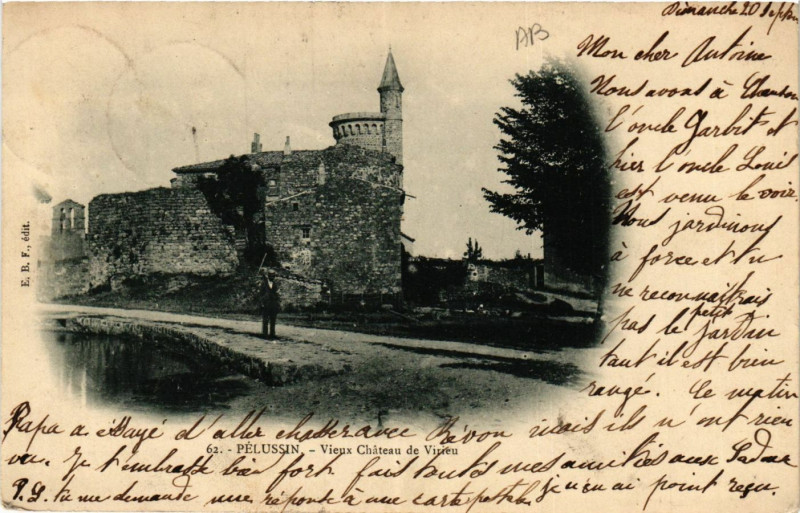 Dimanche 20
AB
Mon cher Antoine
Nous avons à
l'oncle Garbit et
hier l'oncle Louis
est venu le voir.
Nous jardinons
à force et tu
ne reconnaîtrais
pas le petit jardin
tant il est bien
rangé. Ce matin
Papa a éssayé d'aller chasser avec mais ils n'ont rien
vu. Je t'embrasse bien fort fais toutes mes amitiés aux
P.S. tu me demande une réponse à une carte postale je n'en ai point reçu.
62. - PÉLUSSIN. - Vieux Château de Virieu
E. B. F., édit.